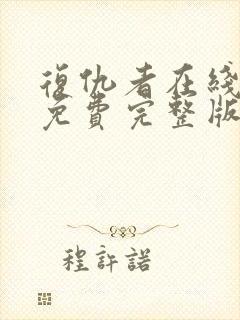 復仇者在綫
免費完整版
程許諾